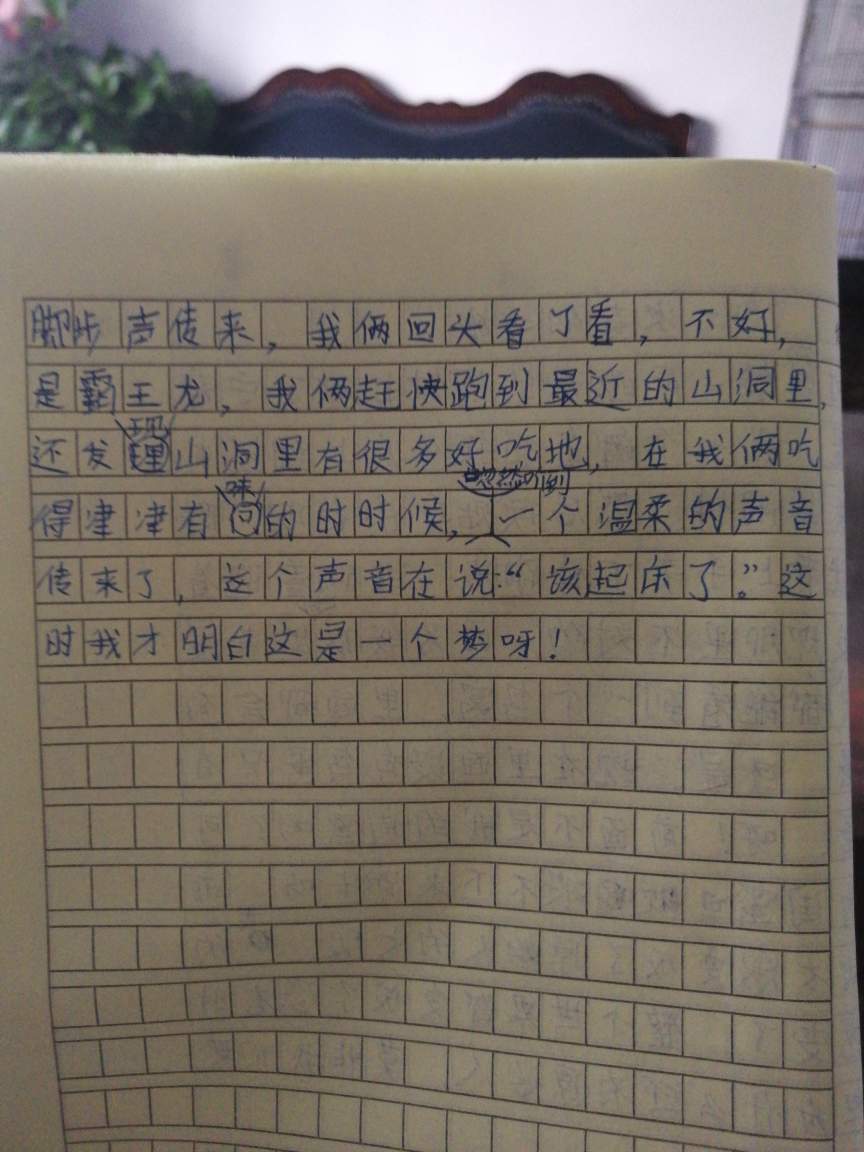 脚步声传来，我俩回头看了看，不好，
是霸王龙，我俩赶快跑到最近的山洞里，
还发现山洞里有很多好吃地，在我俩吃
得津津有味的时时候，忽然听到一个温柔的声音
传来了，这个声音在说：“该起床了。”这
时我才明白这是一个梦呀！